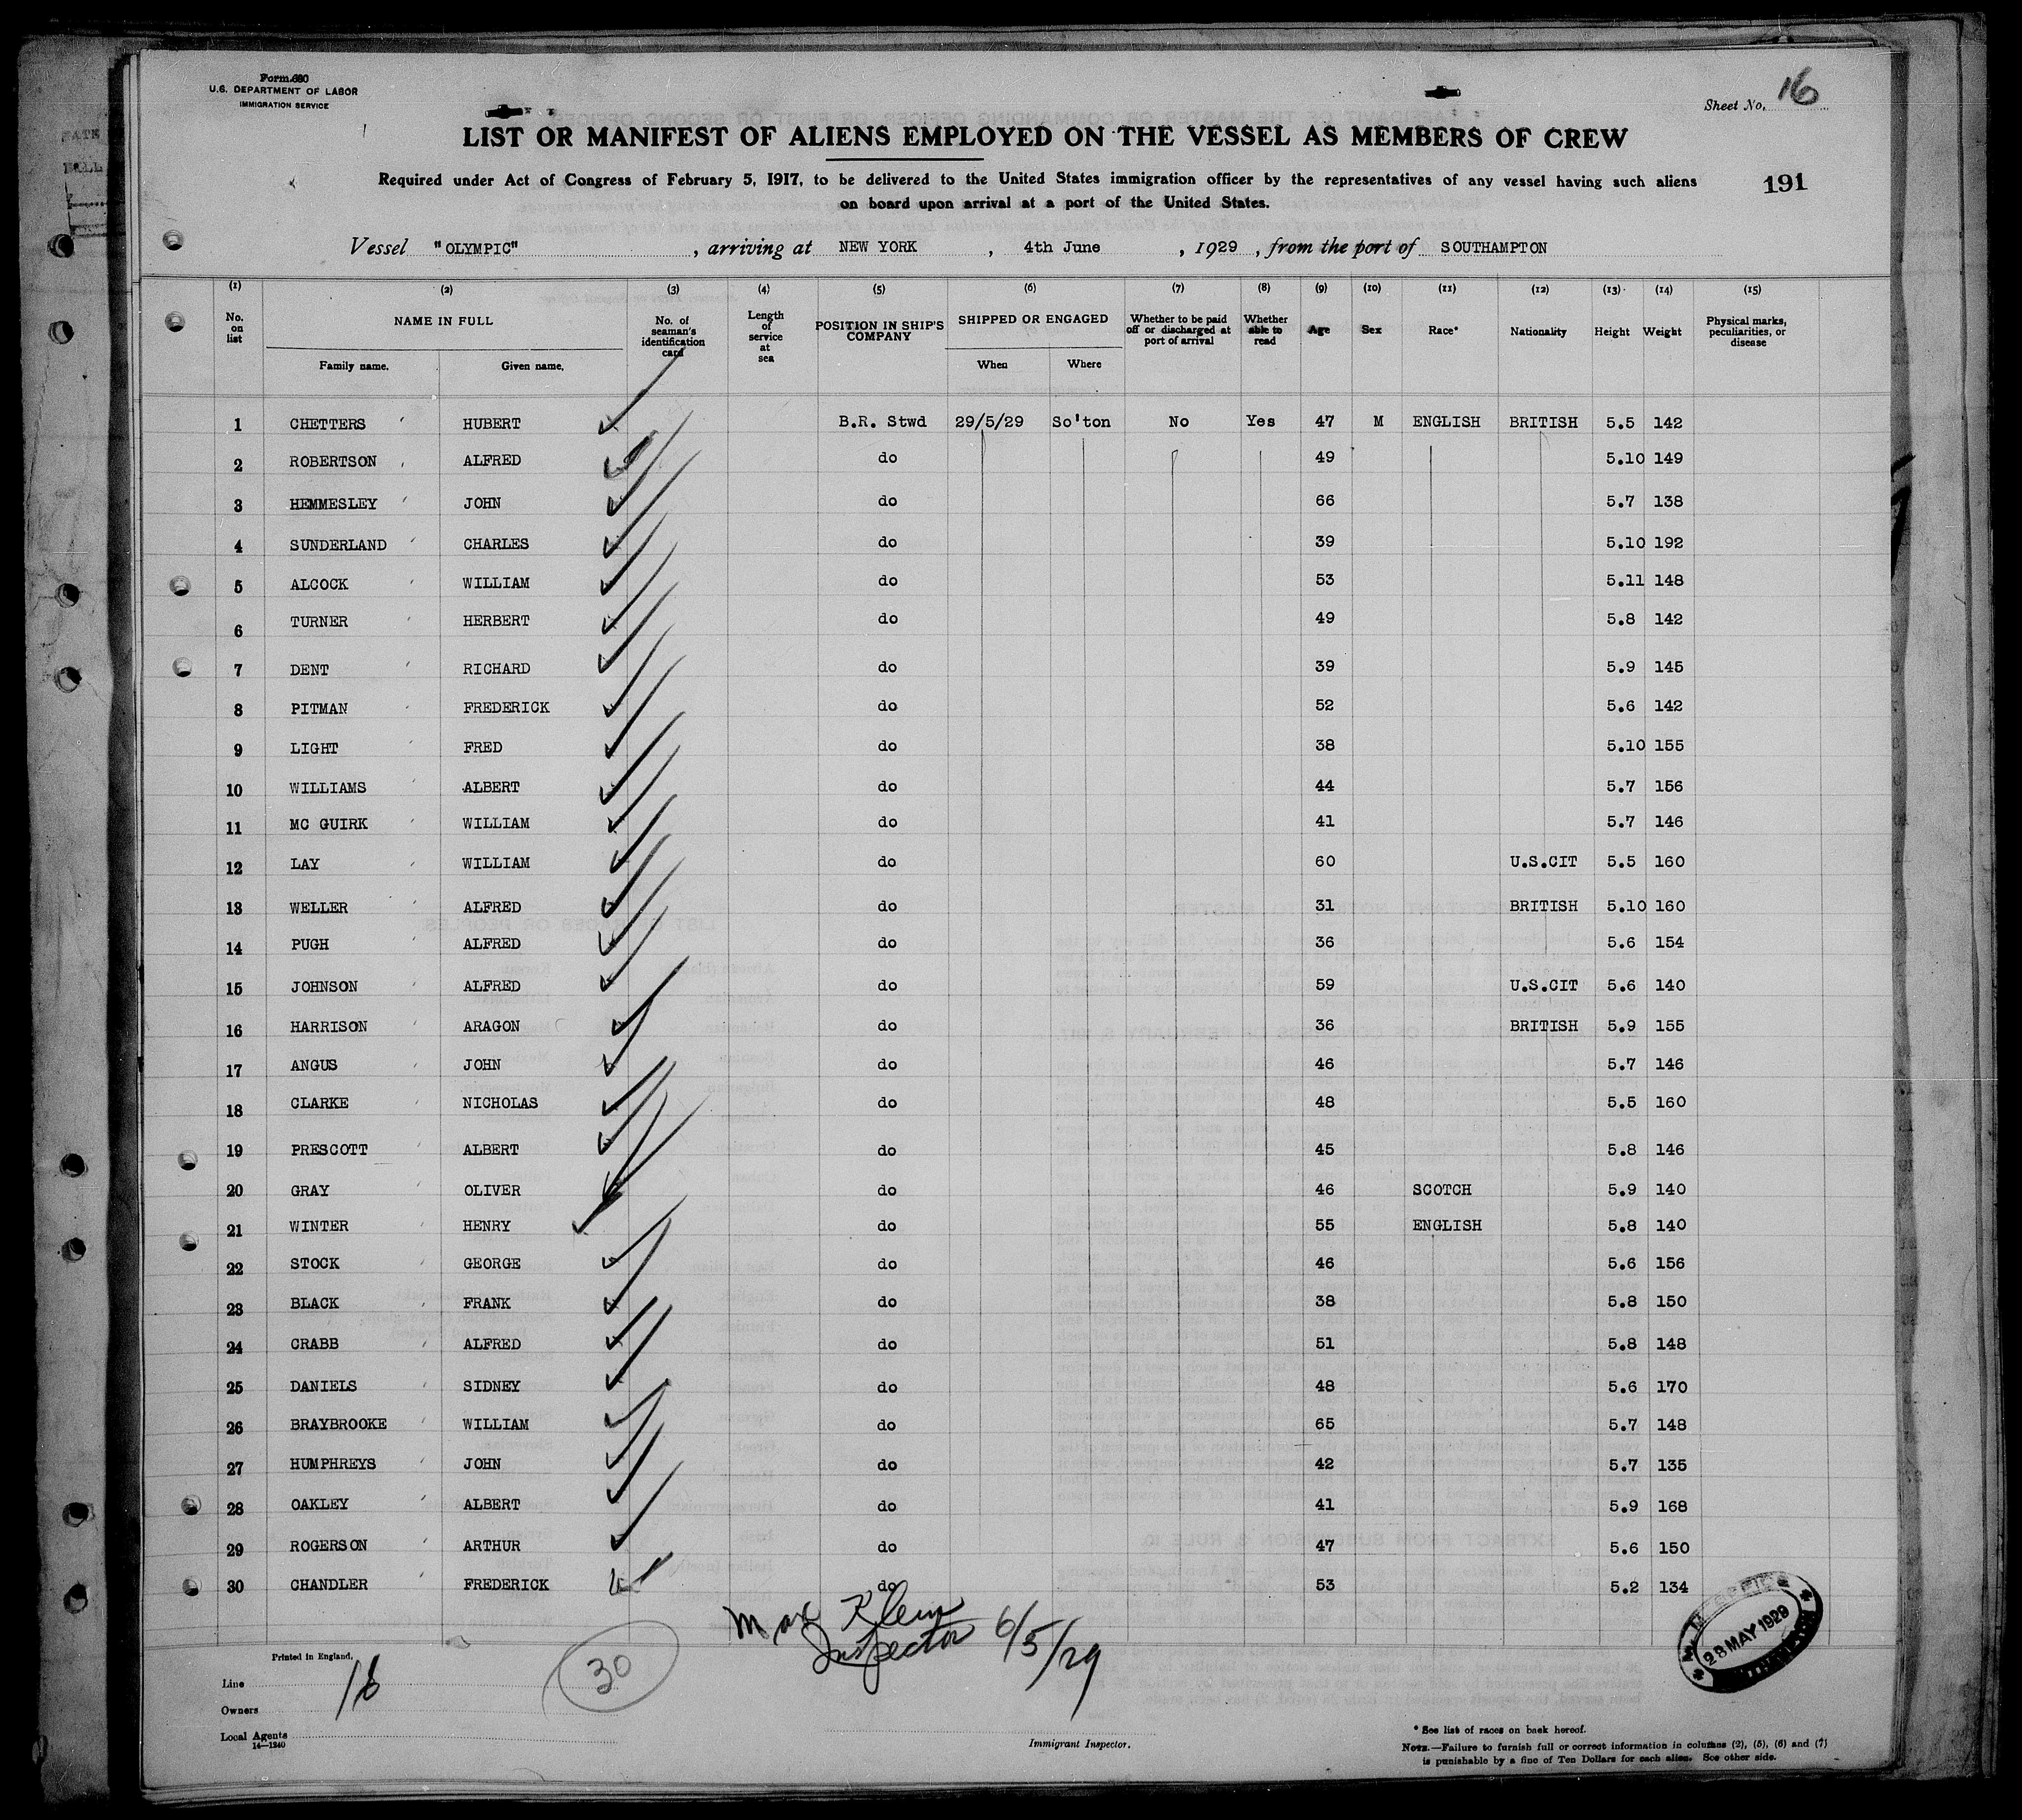 Form 680
U.S. DEPARTMENT OF LABOR
IMMIGRATION SERVICE
Sheet No. 16
LIST OR MANIFEST OF ALIENS EMPLOYED ON THE VESSEL AS MEMBERS OF CREW
Required under Act of Congress of February 5, 1917, to be delivered to the United States immigration officer by the representatives of any vessel having such aliens
on board upon arrival at a port of the United States.
191
Vessel "OLYMPIC", arriving at NEW YORK, 4th June, 1929, from the port of SOUTHAMPTON
(1) (2) (3) (4) (5) (6) (7) (8) (9) (10) (11) (12) (13) (14) (15)
No. on list NAME IN FULL Family name. Given name. No. of seaman's identification card Length of service at sea POSITION IN SHIP'S COMPANY SHIPPED OR ENGAGED When Where Whether to be paid off or discharged at port of arrival Whether able to read Age Sex Race* Nationality Height Weight Physical marks, peculiarities, or disease
1 CHETTERS HUBERT B.R. Stwd 29/5/29 So'ton No Yes 47 M ENGLISH BRITISH 5.5 142
2 ROBERTSON ALFRED do 49 5.10 149
3 HEMMESLEY JOHN do 66 5.7 138
4 SUNDERLAND CHARLES do 39 5.10 192
5 ALCOCK WILLIAM do 53 5.11 148
6 TURNER HERBERT do 49 5.8 142
7 DENT RICHARD do 39 5.9 145
8 PITMAN FREDERICK do 52 5.6 142
9 LIGHT FRED do 38 5.10 155
10 WILLIAMS ALBERT do 44 5.7 156
11 MC GUIRK WILLIAM do 41 5.7 146
12 LAY WILLIAM do 60 U.S.CIT 5.5 160
13 WELLER ALFRED do 31 BRITISH 5.10 160
14 PUGH ALFRED do 36 5.6 154
15 JOHNSON ALFRED do 59 U.S.CIT 5.6 140
16 HARRISON ARAGON do 36 BRITISH 5.9 155
17 ANGUS JOHN do 46 5.7 146
18 CLARKE NICHOLAS do 48 5.5 160
19 PRESCOTT ALBERT do 45 5.8 146
20 GRAY OLIVER do 46 SCOTCH 5.9 140
21 WINTER HENRY do 55 ENGLISH 5.8 140
22 STOCK GEORGE do 46 5.6 156
23 BLACK FRANK do 38 5.8 150
24 CRABB ALFRED do 51 5.8 148
25 DANIELS SIDNEY do 48 5.6 170
26 BRAYBROOKE WILLIAM do 65 5.7 148
27 HUMPHREYS JOHN do 42 5.7 135
28 OAKLEY ALBERT do 41 5.9 168
29 ROGERSON ARTHUR do 47 5.6 150
30 CHANDLER FREDERICK do 53 5.2 134
Max Klein
Inspector 6/5/29
28 MAY 1929
30
Printed in England.
Line
Owners
Local Agents
14—1240
Immigrant Inspector.
* See list of races on back hereof.
NOTE.—Failure to furnish full or correct information in columns (2), (5), (6) and (7)
is punishable by a fine of Ten Dollars for each alien. See other side.